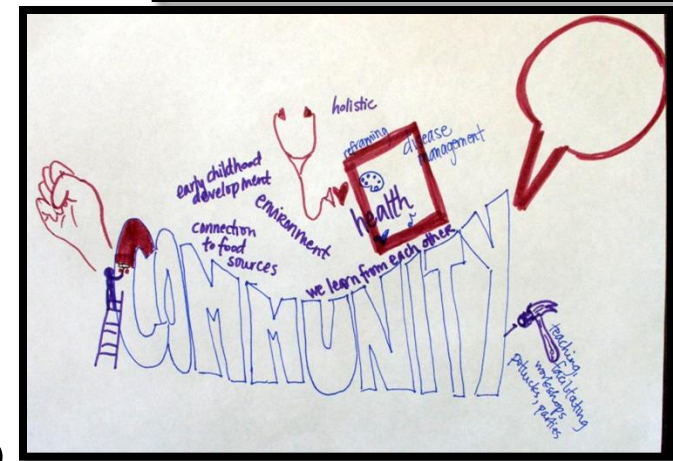 holistic
reframing
disease
management
early childhood
development
environment
health
connection
to food
sources
we learn from each other
COMMUNITY
teaching,
facilitating
workshops
potlucks, parties
)